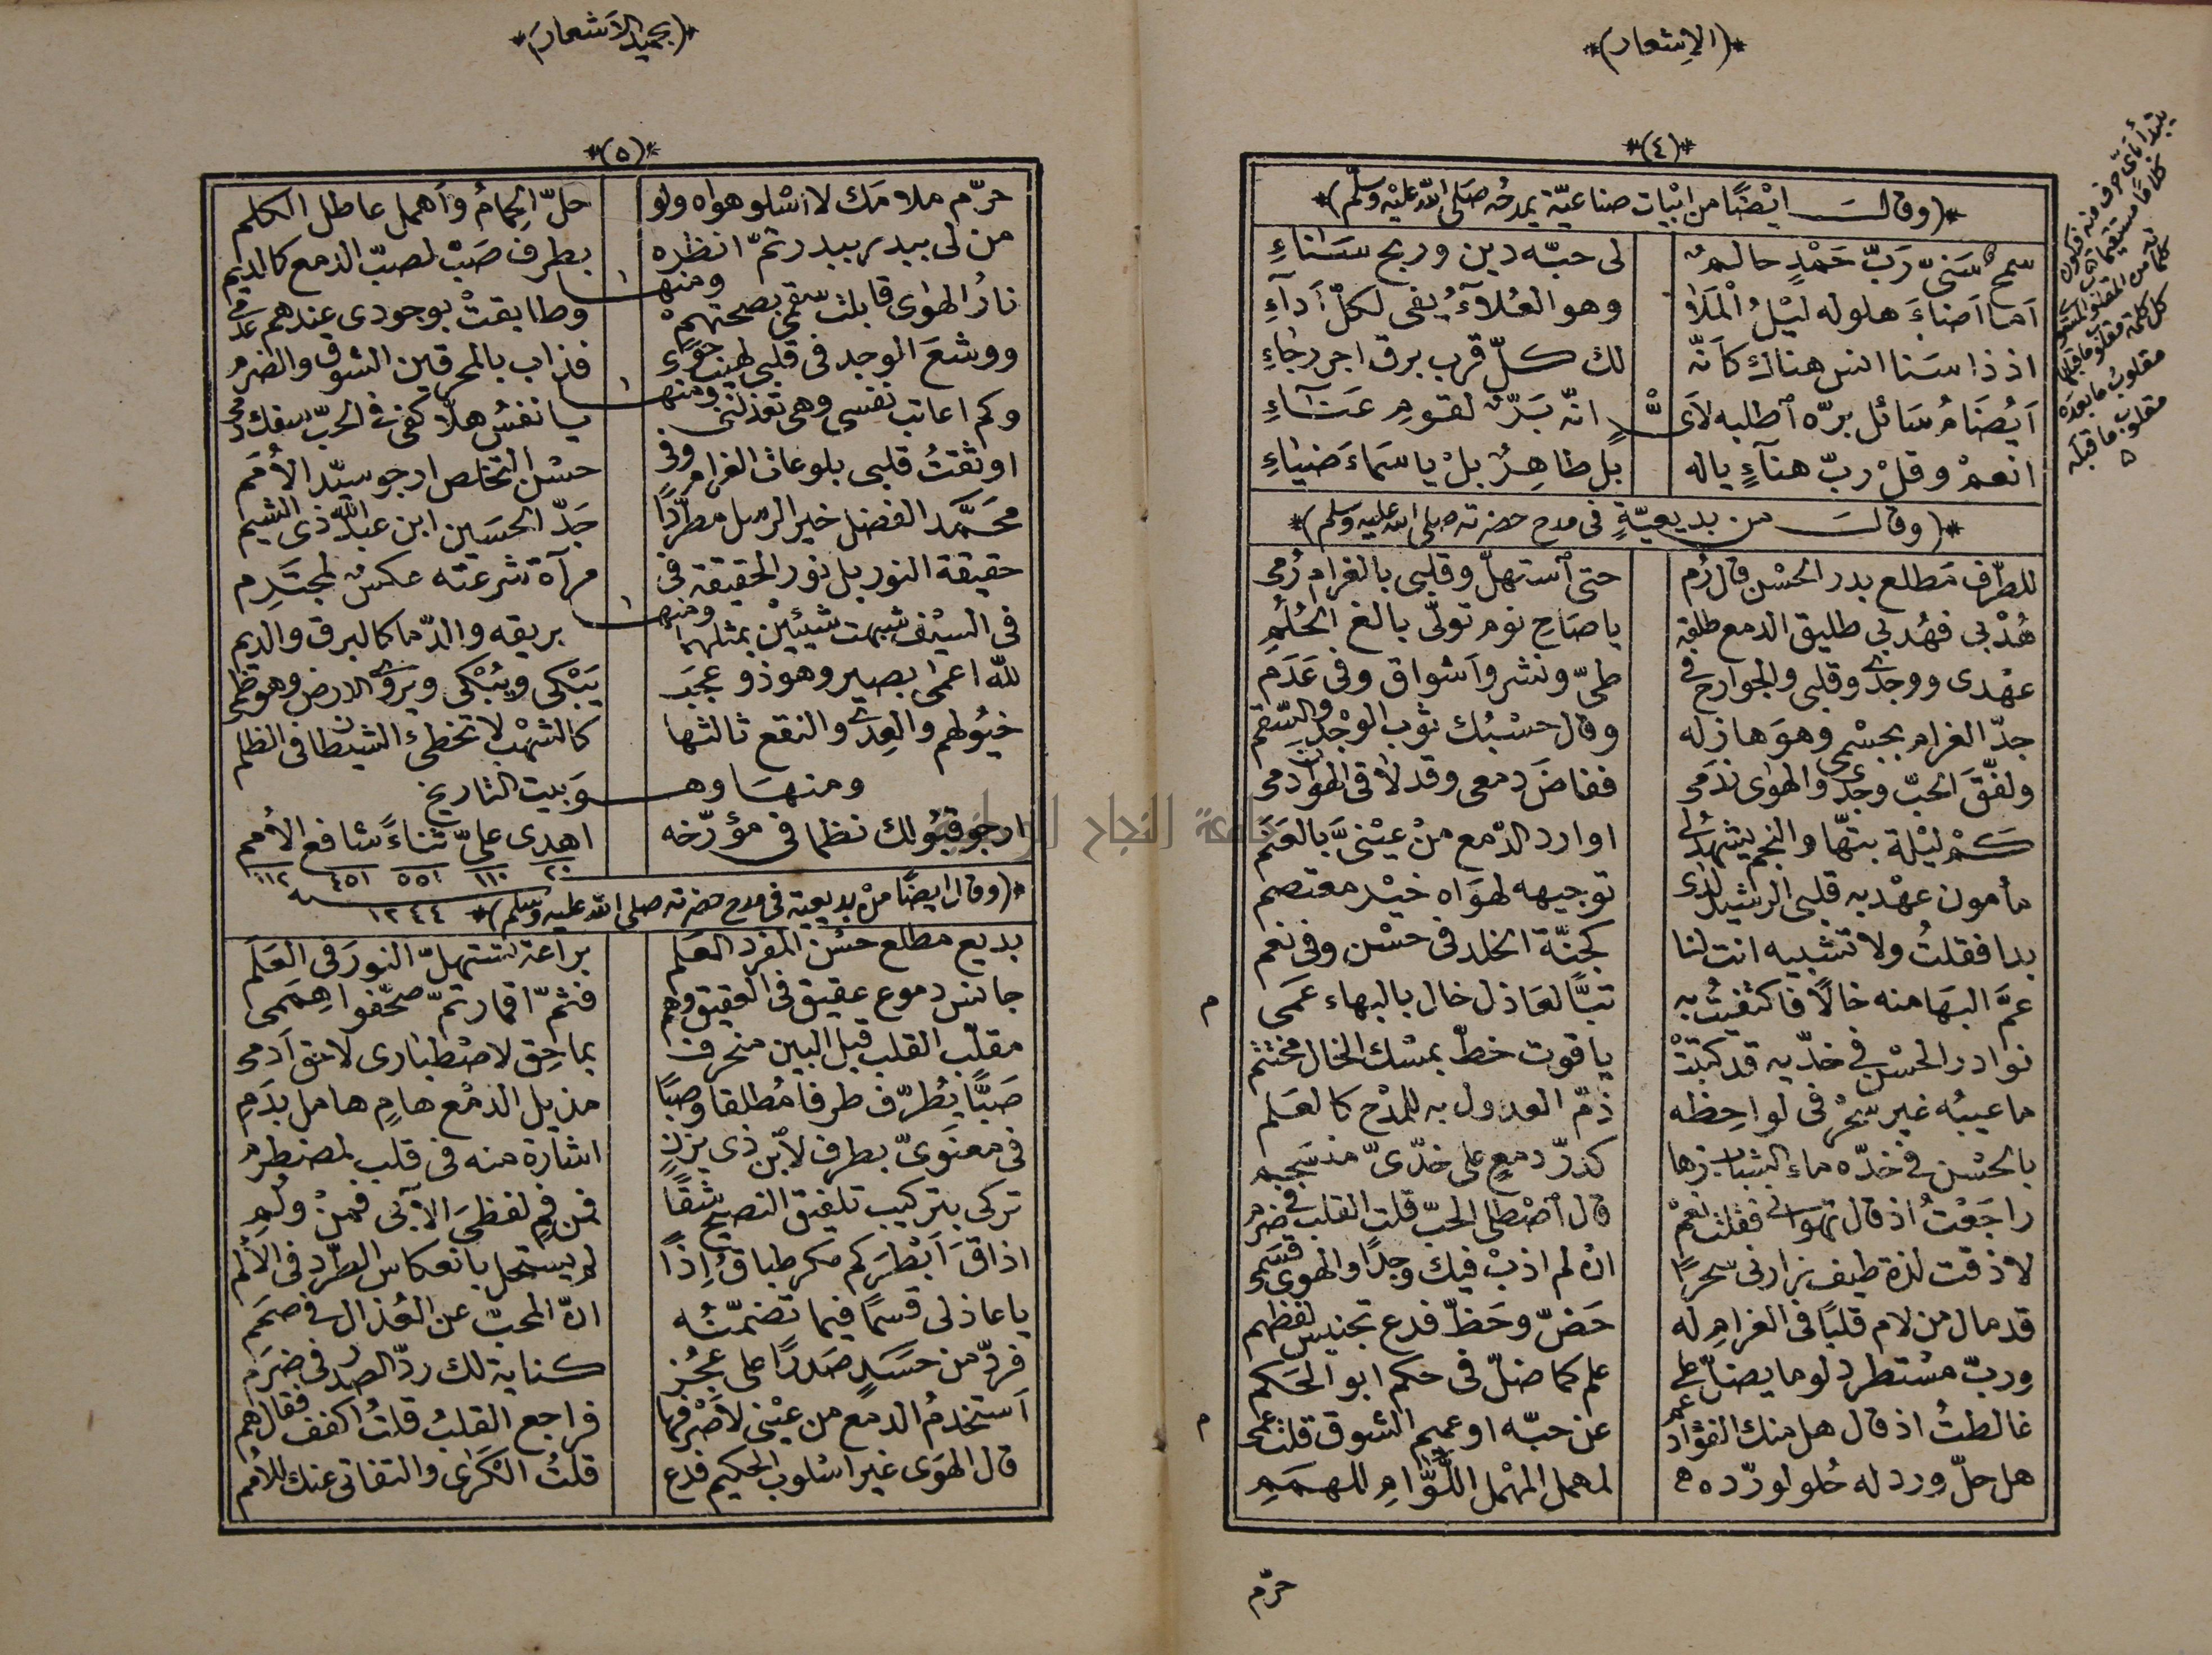 *(الاِشعار)*
*(٤)*
*(وقال ايْضًا من ابْيات صناعيّة يمدحُه صَلى اللّه عليْه وسلّم)*
سمحٌ سَنىّ رَبّ حَمْدٍ حالمٌ لى حبّه دين وربح سَنَاءِ
اَما اَضاءَ هلوله ليْلُ الْمَلَا وهو العُلاَءُ يُفى لكلّ اَدآءِ
اذ ذا سَنا انس هناك كاَنّه لك كلّ قرب برق اجر رجاءِ
اَيُضَامُ سَائل برّه اطلبه لاَىّ انّه بَدْرٌ لقومِ عَنَاءِ
انعمْ وقلْ ربّ هنآءٍ ياله بل طاهِرٌ بلْ يا سَماءَ ضياءِ
يبتدأ بأىّ حرف منه فيكون
كلامًا مستقيما
كل كلمة مقلوب ما قبلها
مقلوبُ ما بعدَه
مقلوب ما قبله
٥
*(وقال من بديعيّةٍ فى مدح حضرته صلى الله عليه وسلم)*
للطّرف مَطلع بدر الحسْن قال رُم حتى اُستهلّ وقلبى بالغرامِ رُمى
هُدْبى فهُدبى طليق الدمع طلقه يا صَاحِ نوم تولّى بالغ الحُلُمِ
عهْدى ووجدى وقلبى والجوارح فى طىّ ونشر واَشواق وفى عَدَم
جدّ الغرام بجسْمى وهوَ هازله وقال حسْبُك ثوب الوجْد والسّقم
ولفّقَ الحبّ وجدى والهوى نَدَمى ففاضَ دمعى وقد لاقى الهوانَ دمى
كَمْ ليْلة بتّها والنجم يشهد لى اوارد الدّمع منْ عيْنىَّ بالعَنَم
مأمون عهْد به قلبى الرشيد لدى توجيهه لهوَاه خيْر معتصم
بدا فقلتُ ولا تشبيه انت لنا كجنّة الخلد فى حسْن وفى نعم
عمَّ البهَا منه خالًا فاكتفيْتُ به تبًّا لعَاذل خال بالبهاء عمَى م
نوادر الحسْن فى خدّيه قد كتبَتْ ياقوت خطّ بمسْك الخال مختتم
ما عيبُه غير سحْرٍ فى لواحِظه ذمّ العدول به للمدْح كالعَلم
بالحسْن فى خدّه ماء الشباب زها كدرّ دمعٍ على خدّىّ منسَجم
راجَعْتُ اذ قال تهوانى فقلت نعَمْ قال اُصْطلى الحبّ قلت القلب فى ضرم
لا ذقت لذة طيف زارنى سحرًا انْ لم اذبْ فيك وجدًا والهوى قسَمى
قد مال من لام قلبًا فى الغرامِ له حَضّ وحَظّ فدع تجنيس لفظهم
وربّ مسْتطرد لوما يضلّ على علم كما ضلّ فى حكم ابو الحَكم
غالطتُ اذ قال هل منك الفؤاد عم عن حبّه او عميم الشوق قلت عمى م
هل حلّ ورد له حُلو لورّده لمهمل المهْمل اللّوّامِ للهمَمِ
حرّم
*(بحميد الاَشعار)*
*(٥)*
حرّم ملامَك لا اسْلو هواه ولو حلّ الحِمامُ واَهمل عاطل الكلم
من لى ببدر ببدر تمّ انظره بطرف صَبّ لصبّ الدمع كالديم
ومنها
نارُ الهوٰى قابلت سقمى بصحّتهمْ وطابقتْ بوجودى عندهم عدمى
ووشعَ الوجد فى قلبى لهيب جوًى فذاب بالمحرقين الشوق والضرم
ومنها
وكم اعاتب نفسى وهى تعذلنى يا نفسُ هلّا كفى فى الحبّ سفك دمى
اوثقتُ قلبى بلوعات الغرام وفى حسْن التخلص ارجو سيّد الاُمَم
محَمّد الفضل خير الرسل مطّردًا جَدّ الحسَين ابن عبد اللّه ذى الشيم
حقيقة النور بل نور الحقيقة فى مرآة شرعته عكسٌ لمجتَرِم
ومنها
فى السيْف شبهت شيئيْن بمثلهما بريقه والدّما كالبرق والديم
للّه اعمى بصير وهو ذو عجَب يَبْكى ويُبْكى ويروى الارض وهو ظمى
خيُولهم والعِدى والنقع ثالثها كالشهْب لا تخطئ الشيطان فى الظلم
ومنهَا وهوَ بيت التاريخ
ارجو قبُولك نظما فى مؤرّخه اهدى علىّ ثناءً شافع الاُمم
٢٠ ١١٠ ٥٥١ ٤٥١ ١١٢
سنه ١٢٤٤
*(وقال ايضًا منْ بديعية فى مدح حضرته صلى الله عليه وسلم)*
بديع مطلع حسْن المفرد العَلم براعة تستهلّ النورَ فى العَلَم
جانس دموع عقيق فى العقيق وهم فثمّ اقمار تمّ صحّفوا هِمَمى
مقلّب القلب قبل البين منحرف بما حِق لاصْطبارى لاحق اَدمى
صَبًّا يُطرّف طرفا مُطلقا وصَبًا مذيل الدمْع هامٍ هامل بدَمِ
فى معنَوىّ بطرف لاُبن ذى يزنٍ اشارة منه فى قلب لمضطرم
تركى بتركيب تلفيق النصيح شقًا فمن فمٍ لفظىَ الآنى فمنْ ولمِ
اذاقَ اَبْطرَكم مكر طباقٌ اِذًا لم يستحل بانعكاس الطّرد فى الاَلم
يا عاذلى قسمًا فيما تضمّنُه انّ المحبّ عن العُذال فى صمَم
فردّ من حسَدٍ صَدرًا على عجُز كناية لك ردّ الصدر فى ضرَم
اَستخدمُ الدمع من عيْنى لاَصْرفها فراجع القلبُ قلتُ اكفف فقال هم
قال الهوَى غير اسْلوب الحكيم فدع قلتُ الكَرى والتفاتى عنك للامم